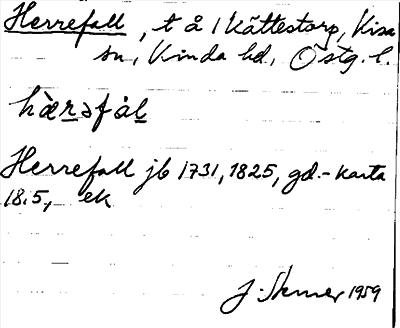 Herrefall, t å 1 Kättestorp, Kisa
sn, Kinda hd, Östg. l.
hæ̀rəfàl
Herrefall jb 1731, 1825, gd.-karta
18.5, ek
J. Skener 1959